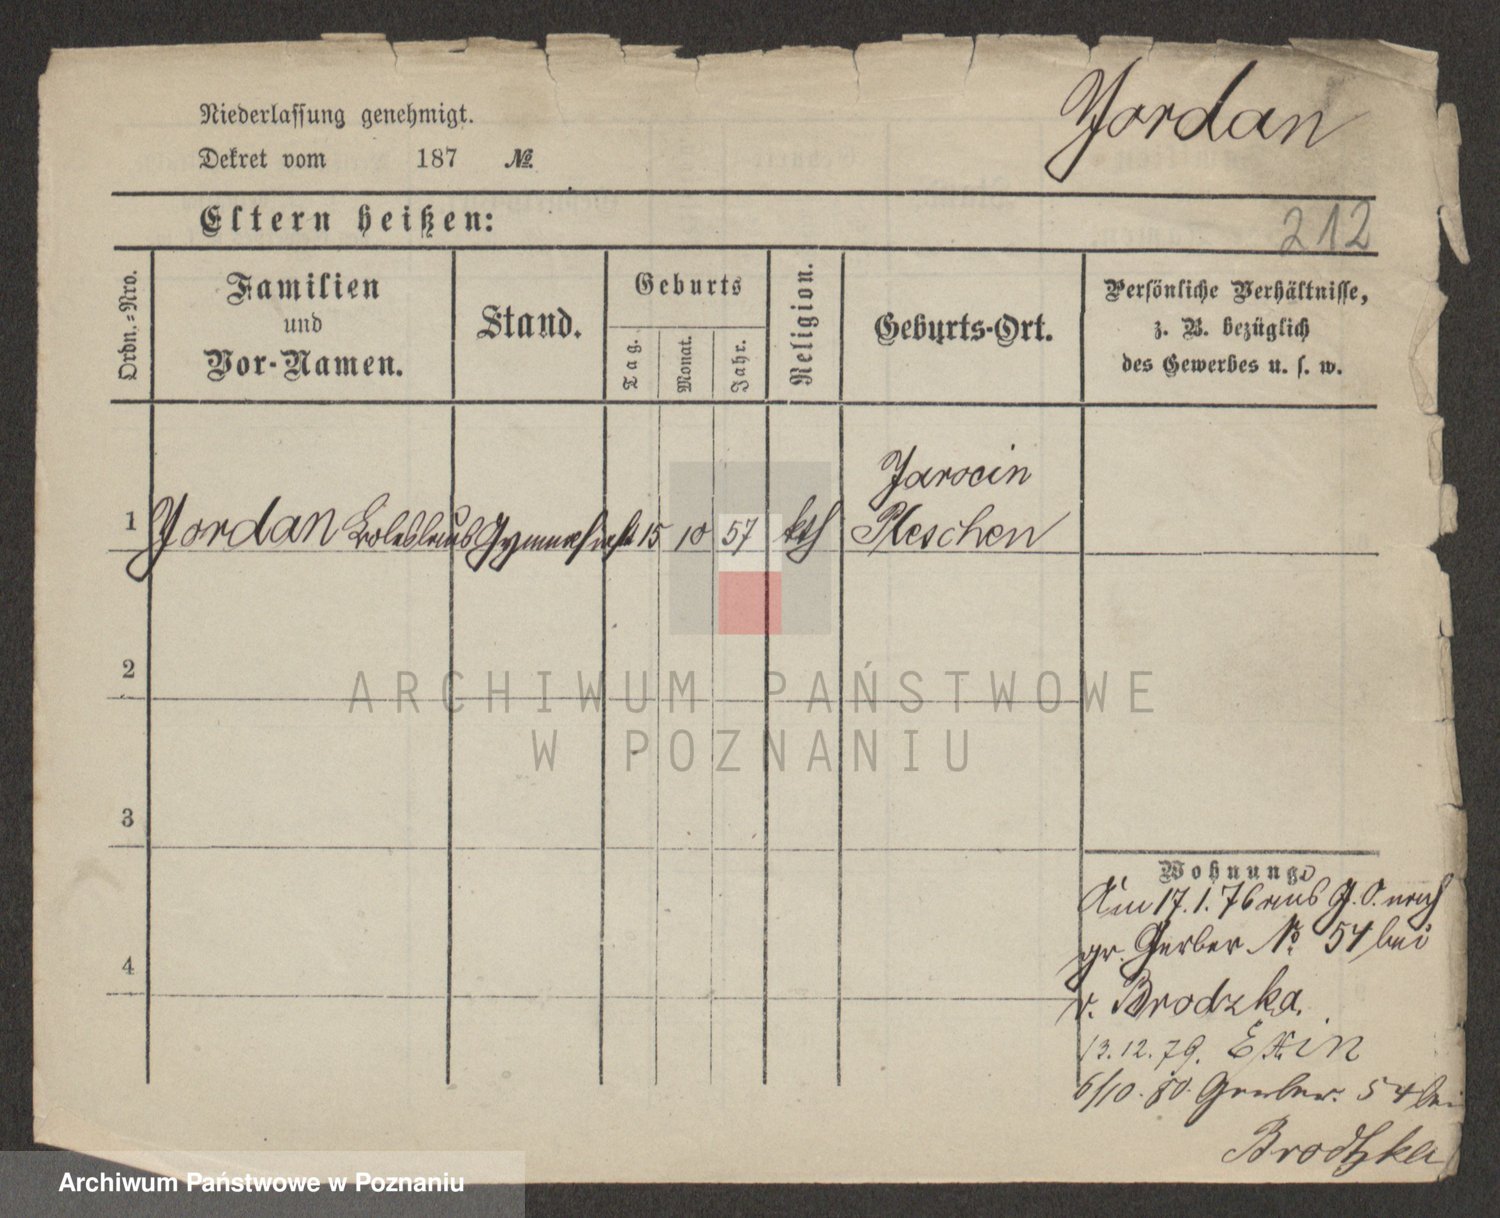 Jordan
Niederlassung genehmigt.
Dekret vom 187 №
Eltern heißen:
212
Ordn.-Nro.
Familien
und
Vor-Namen.
Stand.
Geburts
Tag.
Monat.
Jahr.
Religion.
Geburts-Ort.
Persönliche Verhältnisse,
z. B. bezüglich
des Gewerbes u. s. w.
Jarocin
1 Jordan Boleslaus Gymnasiast 15 10 57 kth Pleschen
2
3
4
Wohnung
Am 17.1.76 aus G. O. nach
gr. Gerber No 54 bei
v. Brodzka.
13.12.79. Exin
6/10.80. Gerber. 54 bei
Brodzka
ARCHIWUM PAŃSTWOWE
W POZNANIU
Archiwum Państwowe w Poznaniu